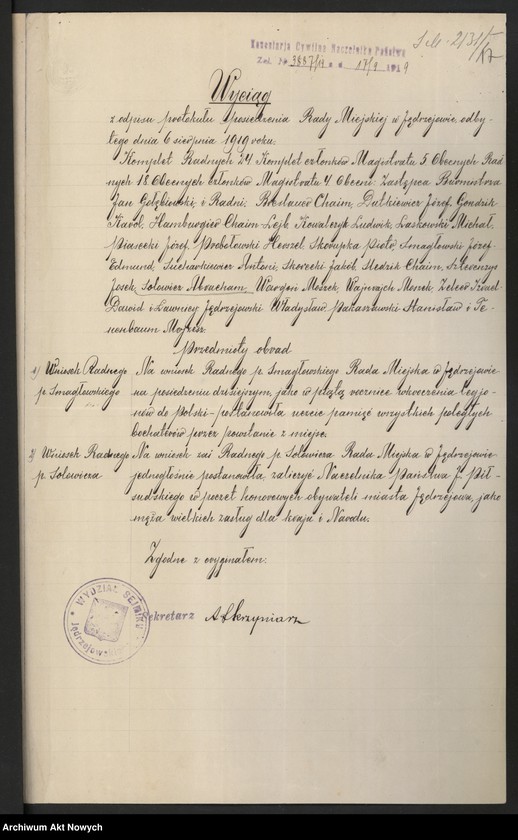 Kancelarja Cywilna Naczelnika Państwa
Zał. № 3887/19 z d. 17/9 1919
17
Wyciąg
z odpisu protokułu posiedzenia Rady Miejskiej w Jędrzejowie, odby-
tego dnia 6 sierpnia 1919 roku.
Komplet Radnych 24. Komplet członków Magistratu 5. Obecnych Rad
nych 18. Obecnych członków Magistratu 4. Obecni: Zastępca Burmistrza
Jan Gołębiowski, i Radni: Chaim, Dutkiewicz Józef, Gondzik
Karol, Hamburgier Chaim-Lejb, Kowalczyk Ludwik, Laskowski Michał,
Piasecki Józef, Herszel, Skorupka Piotr, Smagłowski Józef-
Edmund, Antoni, Skorecki Jakób, Śledzik Chaim,
Josek, Solowicz Abracham, Moszek, Wajnrajch Moszek, Icek
Dawid i Ławnicy Jędrzejowski Władysław, Stanisław i Te-
nenbaum Mojżesz.
Przedmioty obrad
1) Wniosek Radnego
p. Smagłowskiego
Na wniosek Radnego p. Smagłowskiego Rada Miejska w Jędrzejowie
na posiedzeniu dzisiejszym, jako w piątą rocznicę wkroczenia legjo-
nów do Polski – postanowiła uczcić pamięć wszystkich poległych
bochaterów przez powstanie z miejsc.
2) Wniosek Radnego
p. Solowicza
Na wniosek zaś Radnego p. Solowicza Rada Miejska w Jędrzejowie
jednogłośnie postanowiła, zaliczyć Naczelnika Państwa J. Pił-
sudskiego w poczet honorowych obywateli miasta Jędrzejowa, jako
męża wielkich zasług dla kraju i Narodu.
Zgodne z oryginałem:
Sekretarz ASkrzyniarz
WYDZIAŁ SEJMIKU
Jędrzejowskiego
Archiwum Akt Nowych